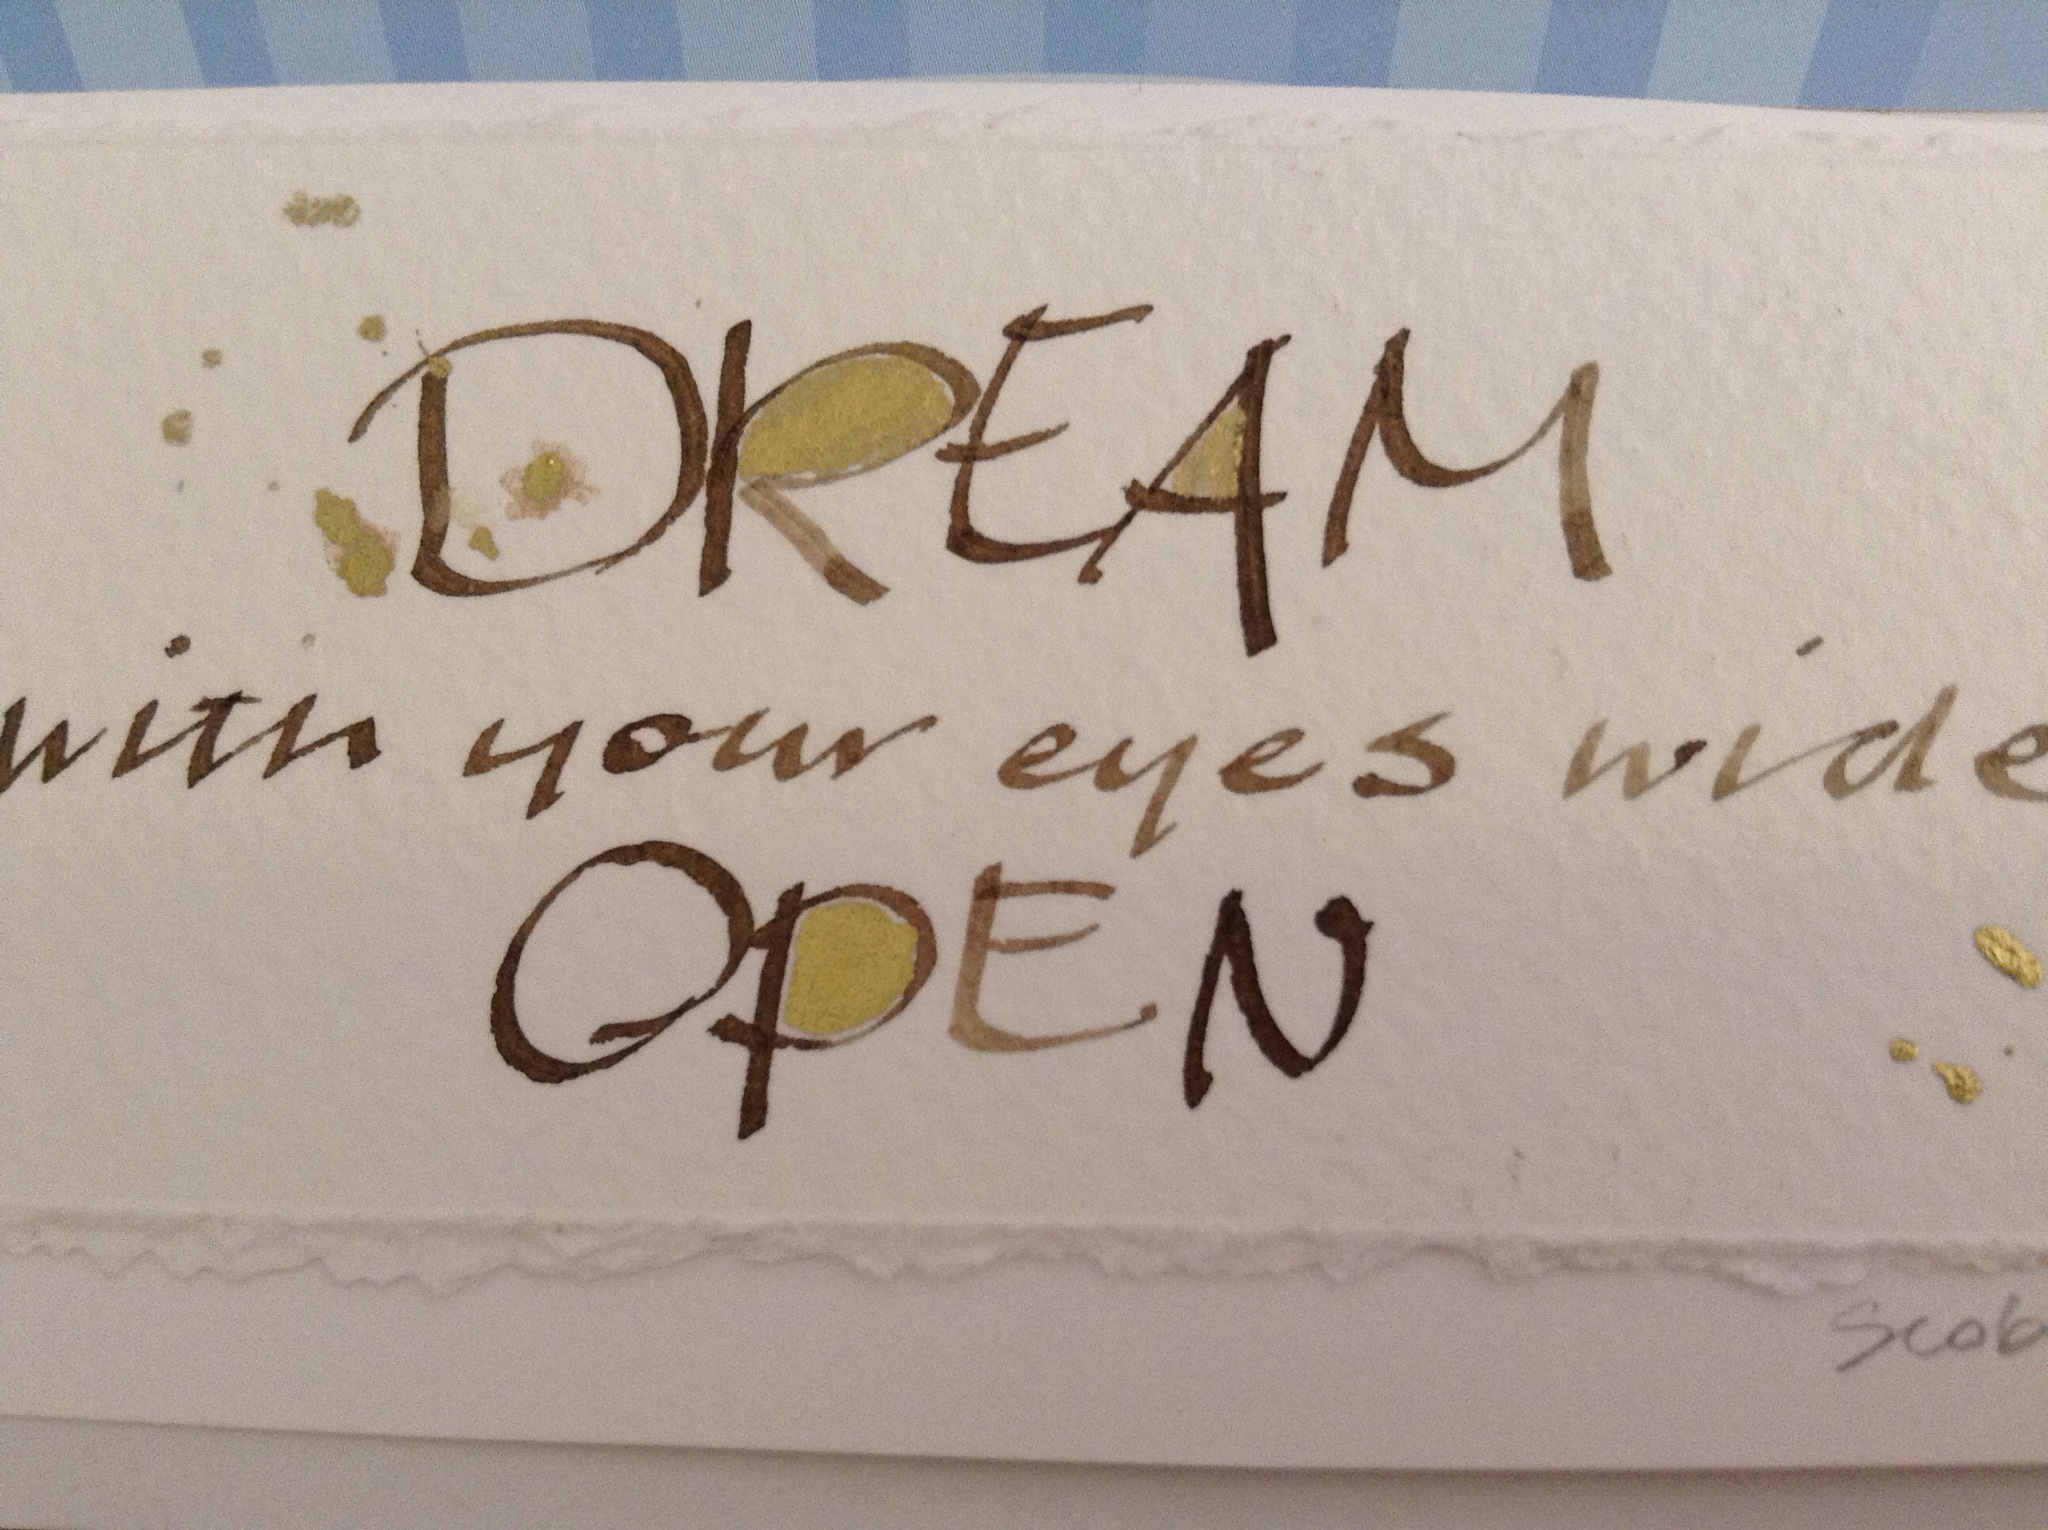 DREAM
with your eyes wide
OPEN
Scob